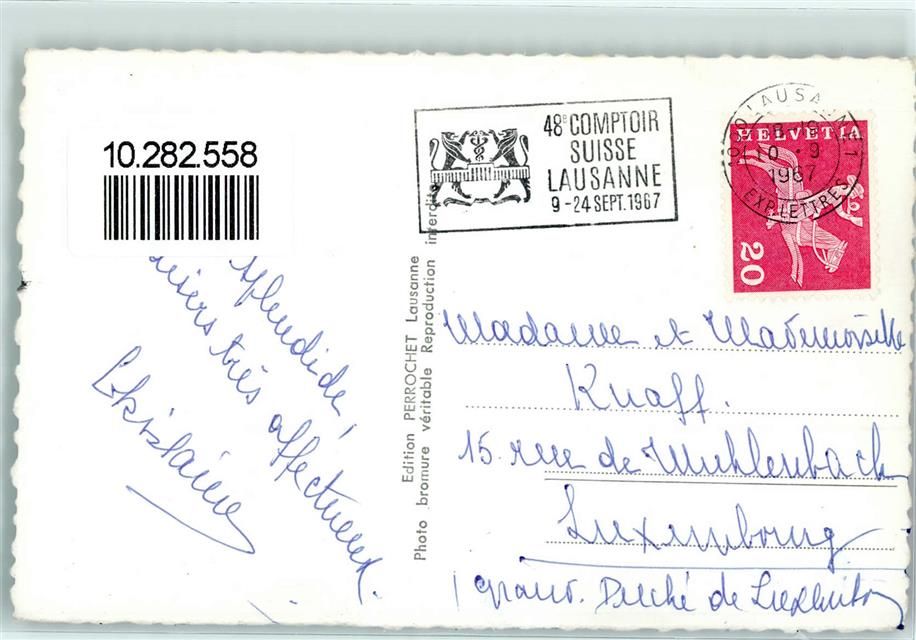 10.282.558
48e COMPTOIR
SUISSE
LAUSANNE
9-24 SEPT. 1967
LAUSANNE 1
10 -9
1967
EXP. LETTRES
HELVETIA
20
splendide,
très affectueux.
Edition PERROCHET Lausanne
Photo bromure véritable Reproduction interdite
Madame et Mademoiselle
Knaff.
15. rue de Muhlenbach
Luxembourg
Duché de